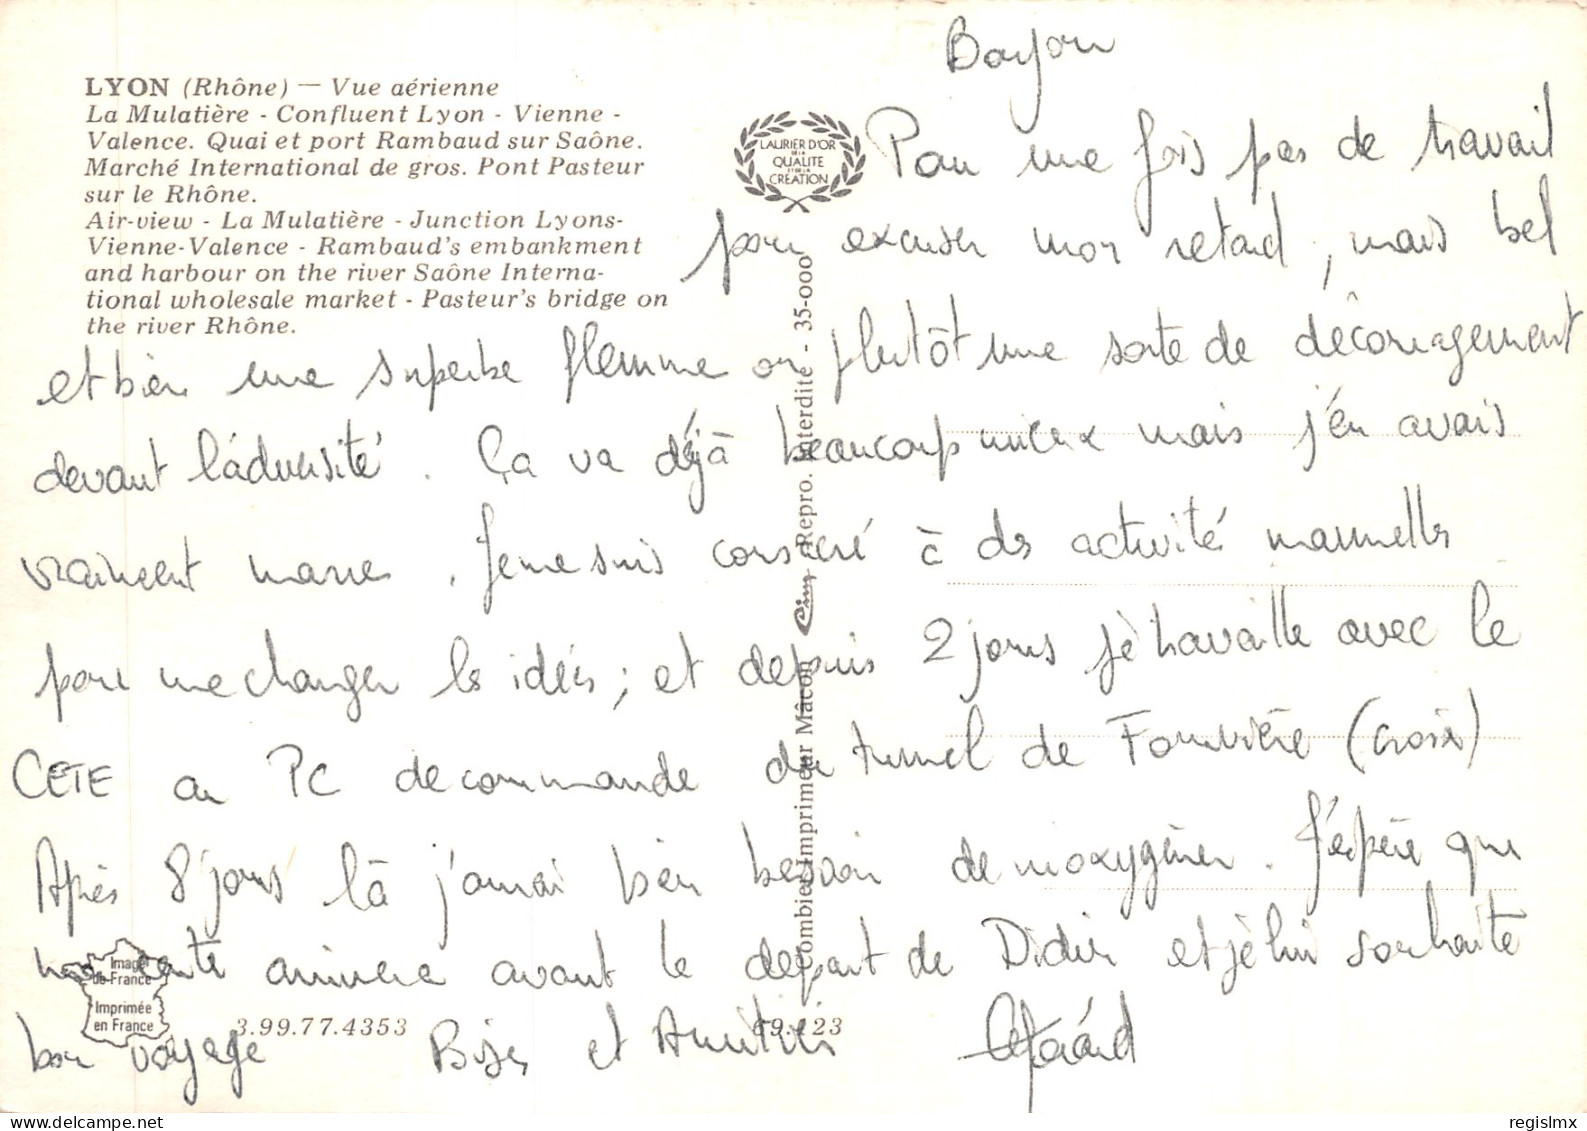 LYON (Rhône) — Vue aérienne
La Mulatière - Confluent Lyon - Vienne -
Valence. Quai et port Rambaud sur Saône.
Marché International de gros. Pont Pasteur
sur le Rhône.
Air-view - La Mulatière - Junction Lyons-
Vienne-Valence - Rambaud's embankment
and harbour on the river Saône Interna-
tional wholesale market - Pasteur's bridge on
the river Rhône.
LAURIER D'OR
DE LA
QUALITE
ET DE LA
CREATION
Combier Imprimeur Mâcon Cim Repro. Interdite - 35-000
Bonjour
Pour une fois pas de travail
pour excuser mon retard, mais bel
et bien une superbe flemme ou plutôt une sorte de découragement
devant l'adversité. Ça va déjà beaucoup mieux mais j'en avais
vraiment marre. Je me suis consacré à des activité manuelles
pour me changer les idées; et depuis 2 jours je travaille avec le
CETE au PC de commande du tunnel de Fourvière (croix)
Après 8 jours là j'aurai bien besoin de m'oxygéner. J'espère que
ma carte arrivera avant le départ de Didier et je lui souhaite
bon voyage Bises et Amitiés Gérard
Images
de France
Imprimée
en France
3.99.77.4353
regislmx